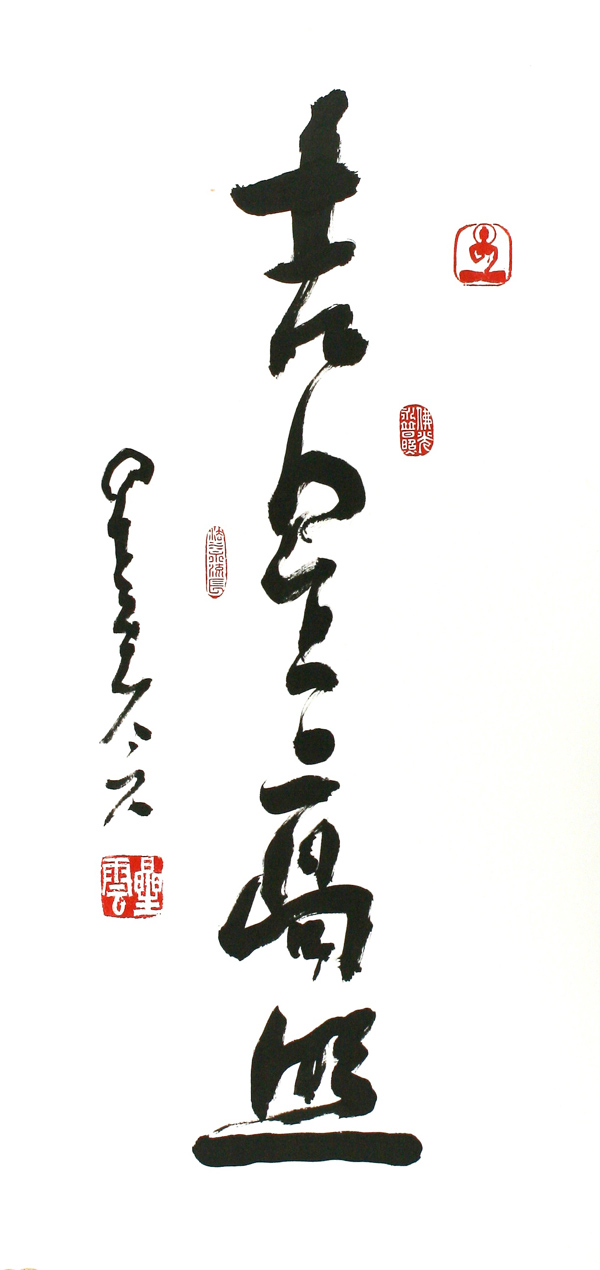 佛光永普照
吉星高照
法水永流長
星雲
星雲